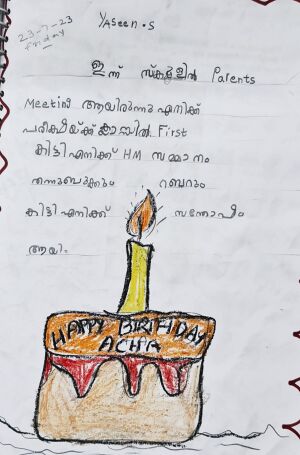 Yaseen.S
23-7-23
Friday
ഇന്ന് സ്കൂളിൽ Parents
Meeting ആയിരുന്നു എനിക്ക്
പരീക്ഷയ്ക്ക് ക്ലാസിൽ First
കിട്ടി എനിക്ക് HM സമ്മാനം
തന്നു ബുക്കും റബറും
കിട്ടി എനിക്ക് സന്തോഷം
ആയി.
HAPPY BIRTHDAY
ACHA